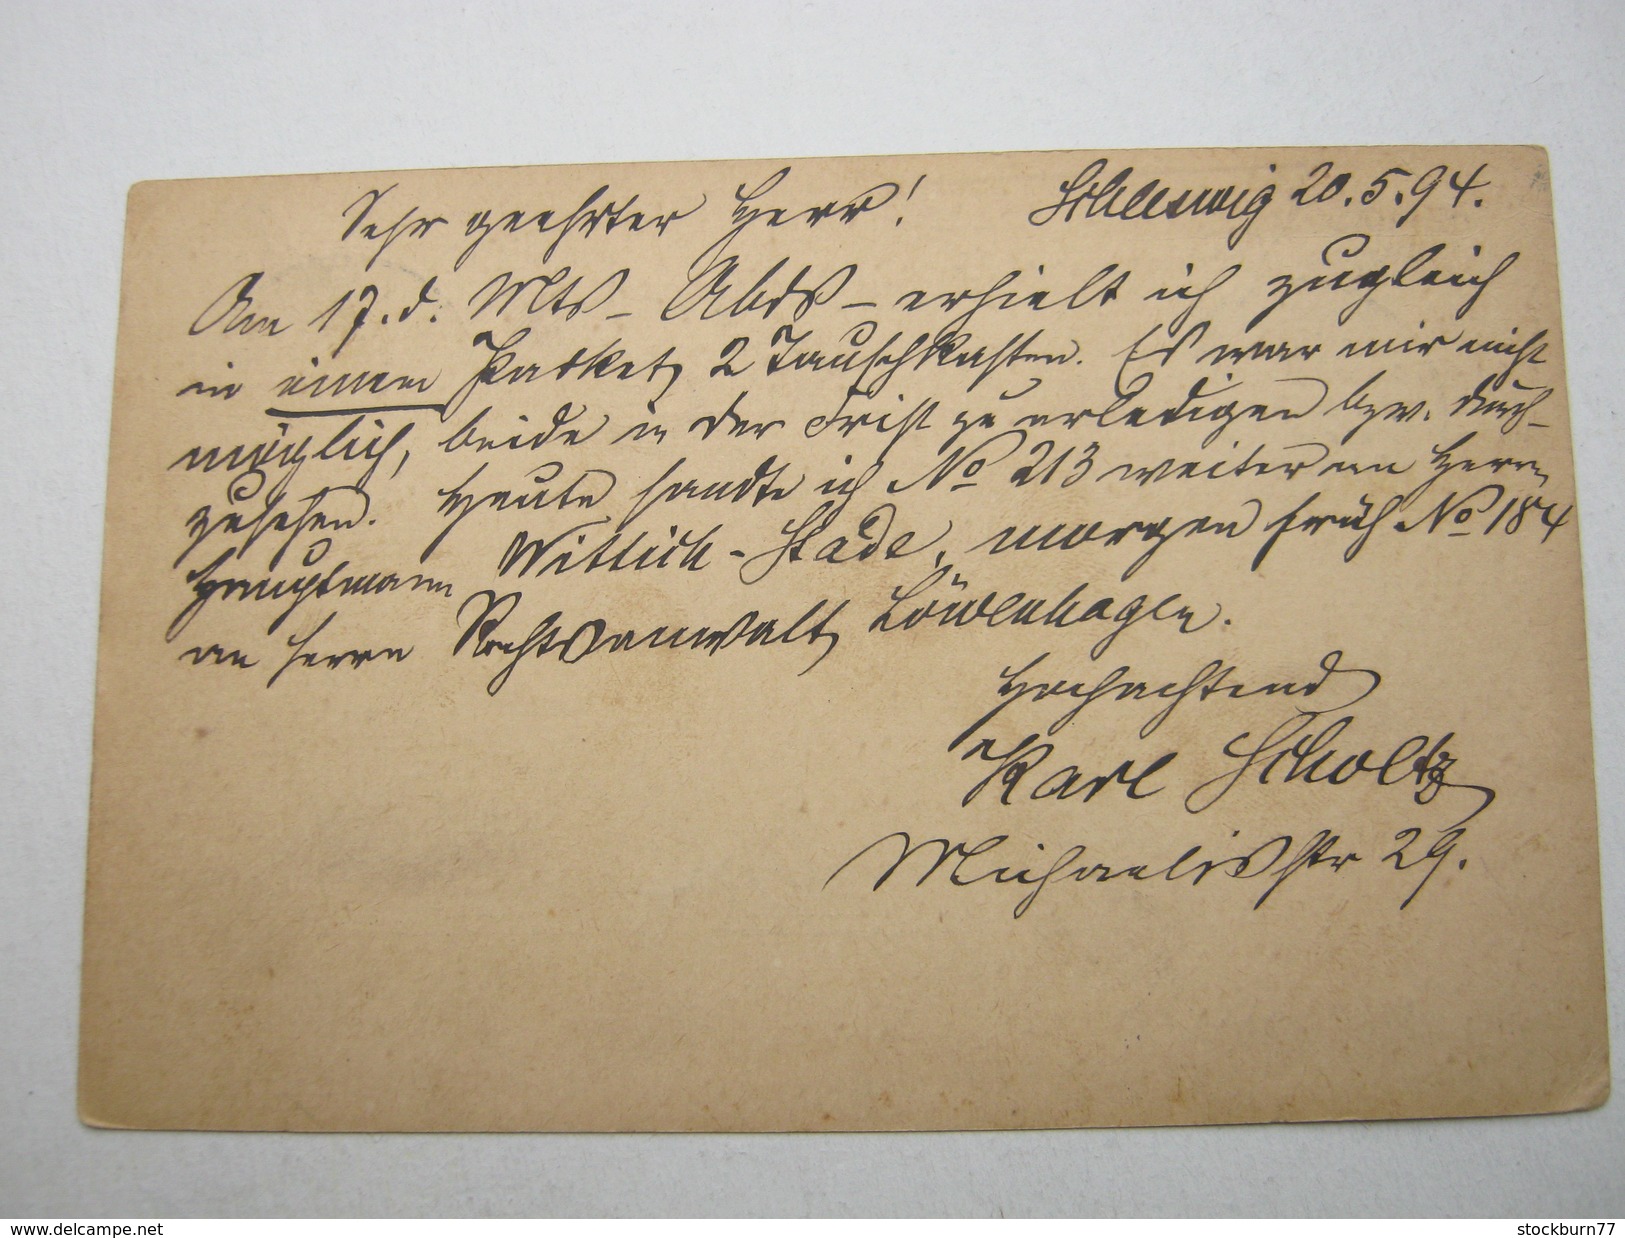 Schleswig 20.5.94.
Sehr geehrter Herr!
Am 17. d. Mts – Abds – erhielt ich zugleich
in einem Packet 2 Tauschkasten. Es war mir nicht
möglich, beide in der Frist zu erledigen bzw. durch-
zusehen. Heute sandte ich No 213 weiter an Herrn
Hauptmann Wittich - Stade, morgen früh No 184
an Herrn Rechtsanwalt Löwenhagen.
Hochachtend
Karl Scholtz
Michaelisstr 29.
www.delcampe.net
stockburn77